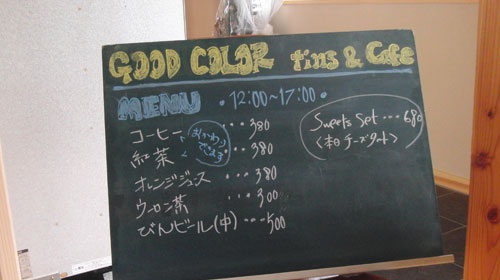 GOOD COLOR tins & Cafe
MENU •12:00~17:00•
コーヒー ・・・380
紅茶 ・・・380
おかわり
できます
オレンジジュース ・・・380
ウーロン茶 ・・・300
びんビール(中) ・・・・500
Sweets Set ・・・680